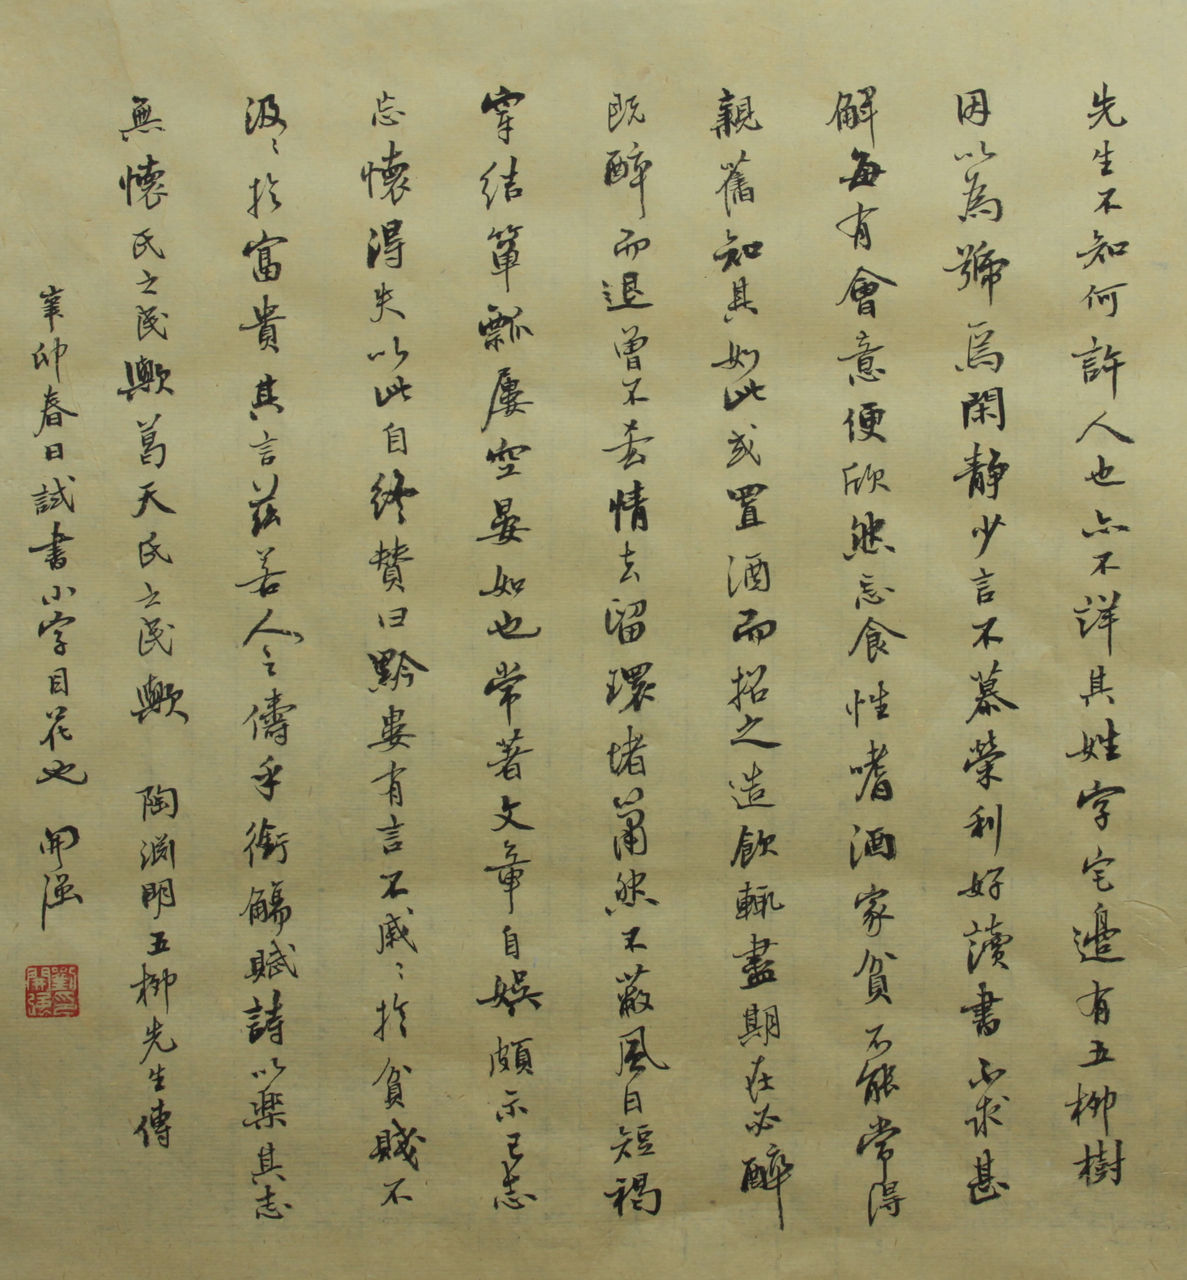 先生不知何許人也亦不詳其姓字宅邊有五柳樹
因以為號焉閑靜少言不慕榮利好讀書不求甚
解每有會意便欣然忘食性嗜酒家貧不能常得
親舊知其如此或置酒而招之造飲輒盡期在必醉
既醉而退曾不吝情去留環堵蕭然不蔽風日短褐
穿結簞瓢屢空晏如也常著文章自娛頗示己志
忘懷得失以此自終贊曰黔婁有言不戚〻於貧賤不
汲〻於富貴其言茲若人之儔乎銜觴賦詩以樂其志
無懷氏之民歟葛天氏之民歟 陶淵明五柳先生傳
辛卯春日試書小字目花也 開強
劉印開強